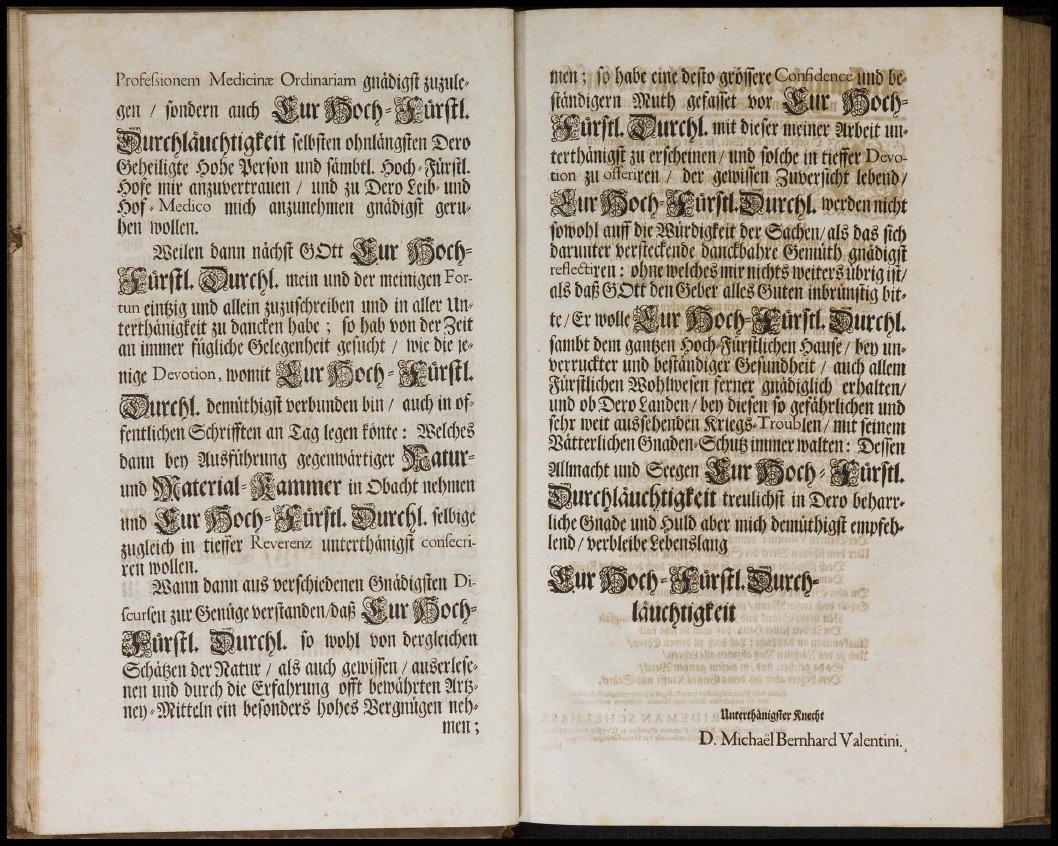 Profeſsionem Medicinæ Ordinariam gnädigſt zuzule⸗
gen / ſondern auch Eur Hoch⸗Fürſtl.
Durchläuchtigkeit ſelbſten ohnlängſten Dero
Geheiligte Hohe Perſon und ſämbtl. Hoch⸗Fürſtl.
Hofe mir anzuvertrauen / und zu Dero Leib⸗ und
Hof⸗Medico mich anzunehmen gnädigſt geru⸗
hen wollen.
Weilen dann nächſt GOtt Eur Hoch⸗
Fürſtl. Durchl. mein und der meinigen For-
tun eintzig und allein zuzuſchreiben und in aller Un⸗
terthänigkeit zu dancken habe ; ſo hab von der Zeit
an immer fügliche Gelegenheit geſucht / wie die je⸗
nige Devotion, womit Eur Hoch⸗Fürſtl.
Durchl. demüthigſt verbunden bin / auch in of⸗
fentlichen Schrifften an Tag legen könte : Welches
dann bey Ausführung gegenwärtiger Natur⸗
und Material⸗Kammer in Obacht nehmen
und Eur Hoch⸗Fürſtl. Durchl. ſelbige
zugleich in tieffer Reverenz unterthänigſt conſecri-
ren wollen.
Wann dann aus verſchiedenen Gnädigſten Di-
ſcurſen zur Genüge verſtanden / daß Eur Hoch⸗
Fürſtl. Durchl. ſo wohl von dergleichen
Schätzen der Natur / als auch gewiſſen / auserleſe⸗
nen und durch die Erfahrung offt bewährten Artz⸗
ney⸗Mitteln ein beſonders hohes Vergnügen neh⸗
men ;
men ; ſo habe eine deſto gröſſere Confidence und be⸗
ſtändigern Muth gefaſſet vor Eur Hoch⸗
Fürſtl. Durchl. mit dieſer meiner Arbeit un⸗
terthänigſt zu erſcheinen / und ſolche in tieffer Devo-
tion zu offeriren / der gewiſſen Zuverſicht lebend /
Eur Hoch⸗Fürſtl. Durchl. werden nicht
ſowohl auff die Würdigkeit der Sachen / als das ſich
darunter verſteckende danckbahre Gemüth gnädigſt
reflectiren : ohne welches mir nichts weiters übrig iſt /
als daß GOtt den Geber alles Guten inbrünſtig bit⸗
te / Er wolle Eur Hoch⸗Fürſtl. Durchl.
ſambt dem gantzen Hoch⸗Fürſtlichen Hauſe / bey un⸗
verruckter und beſtändiger Geſundheit / auch allem
Fürſtlichen Wohlweſen ferner gnädiglich erhalten /
und ob Dero Landen / bey dieſen ſo gefährlichen und
ſehr weit ausſehenden Kriegs⸗Troublen / mit ſeinem
Vätterlichen Gnaden⸗Schutz immer walten : Deſſen
Allmacht und Seegen Eur Hoch⸗Fürſtl.
Durchläuchtigkeit treulichſt in Dero beharr⸗
liche Gnade und Huld aber mich demüthigſt empfeh⸗
lend / verbleibe Lebenslang
Eur Hoch⸗Fürſtl. Durch⸗
läuchtigkeit
Unterthänigſter Knecht
D. Michaël Bernhard Valentini.